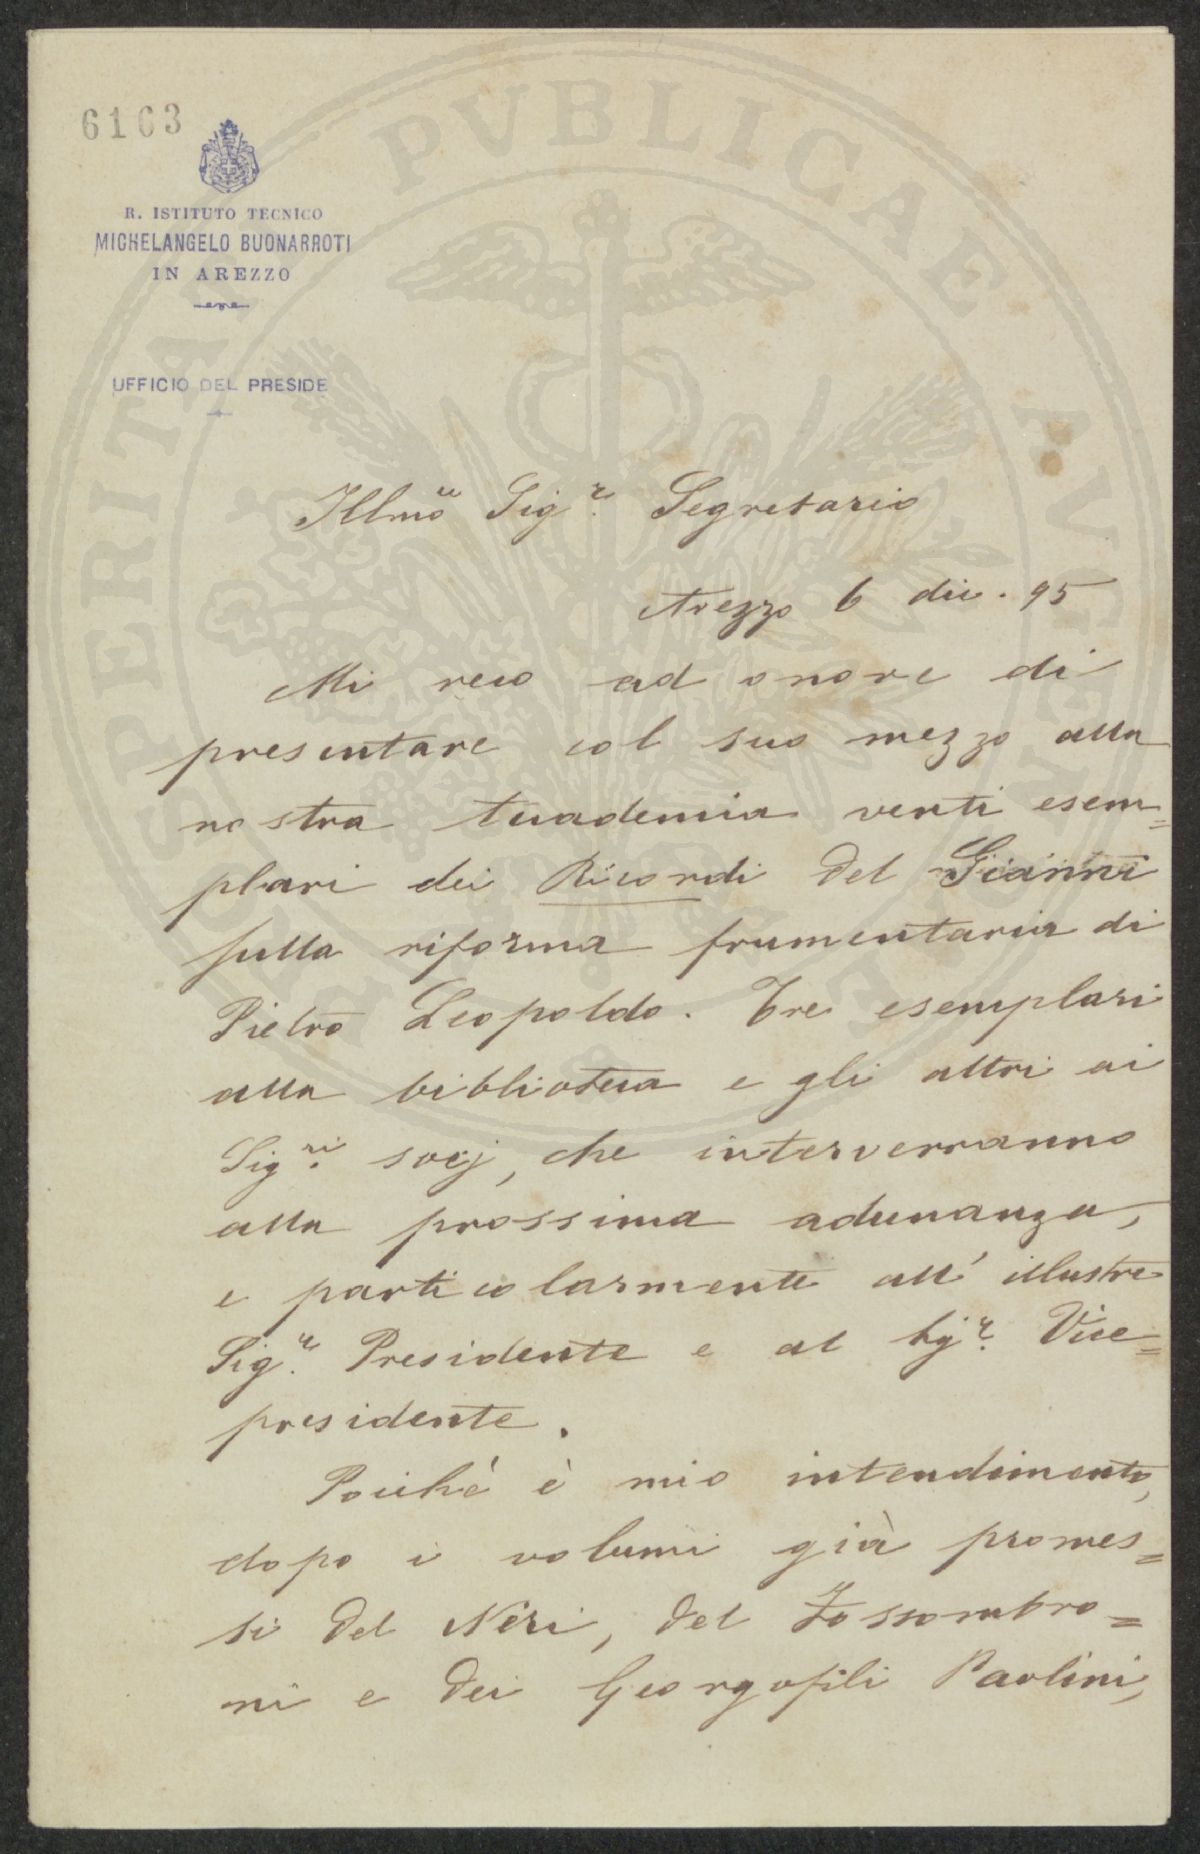 6163
R. ISTITUTO TECNICO
MICHELANGELO BUONARROTI
IN AREZZO
UFFICIO DEL PRESIDE
PROSPERITATI PVBLICAE AVGENDAE
Illmo Sigr. Segretario
Arezzo 6 dic. 95
Mi reco ad onore di
presentare col suo mezzo alla
nostra Accademia venti esem=
plari dei Ricordi del Gianni
sulla riforma frumentaria di
Pietro Leopoldo. Tre esemplari
alla biblioteca e gli altri ai
Sigri. socj, che interverranno
alla prossima adunanza,
e particolarmente all' illustre
Sigr. Presidente e al Sigr. Vice=
presidente.
Poichè è mio intendimento,
dopo i volumi già promes=
si del Neri, del Fossombro=
ni e dei Georgofili Paolini,